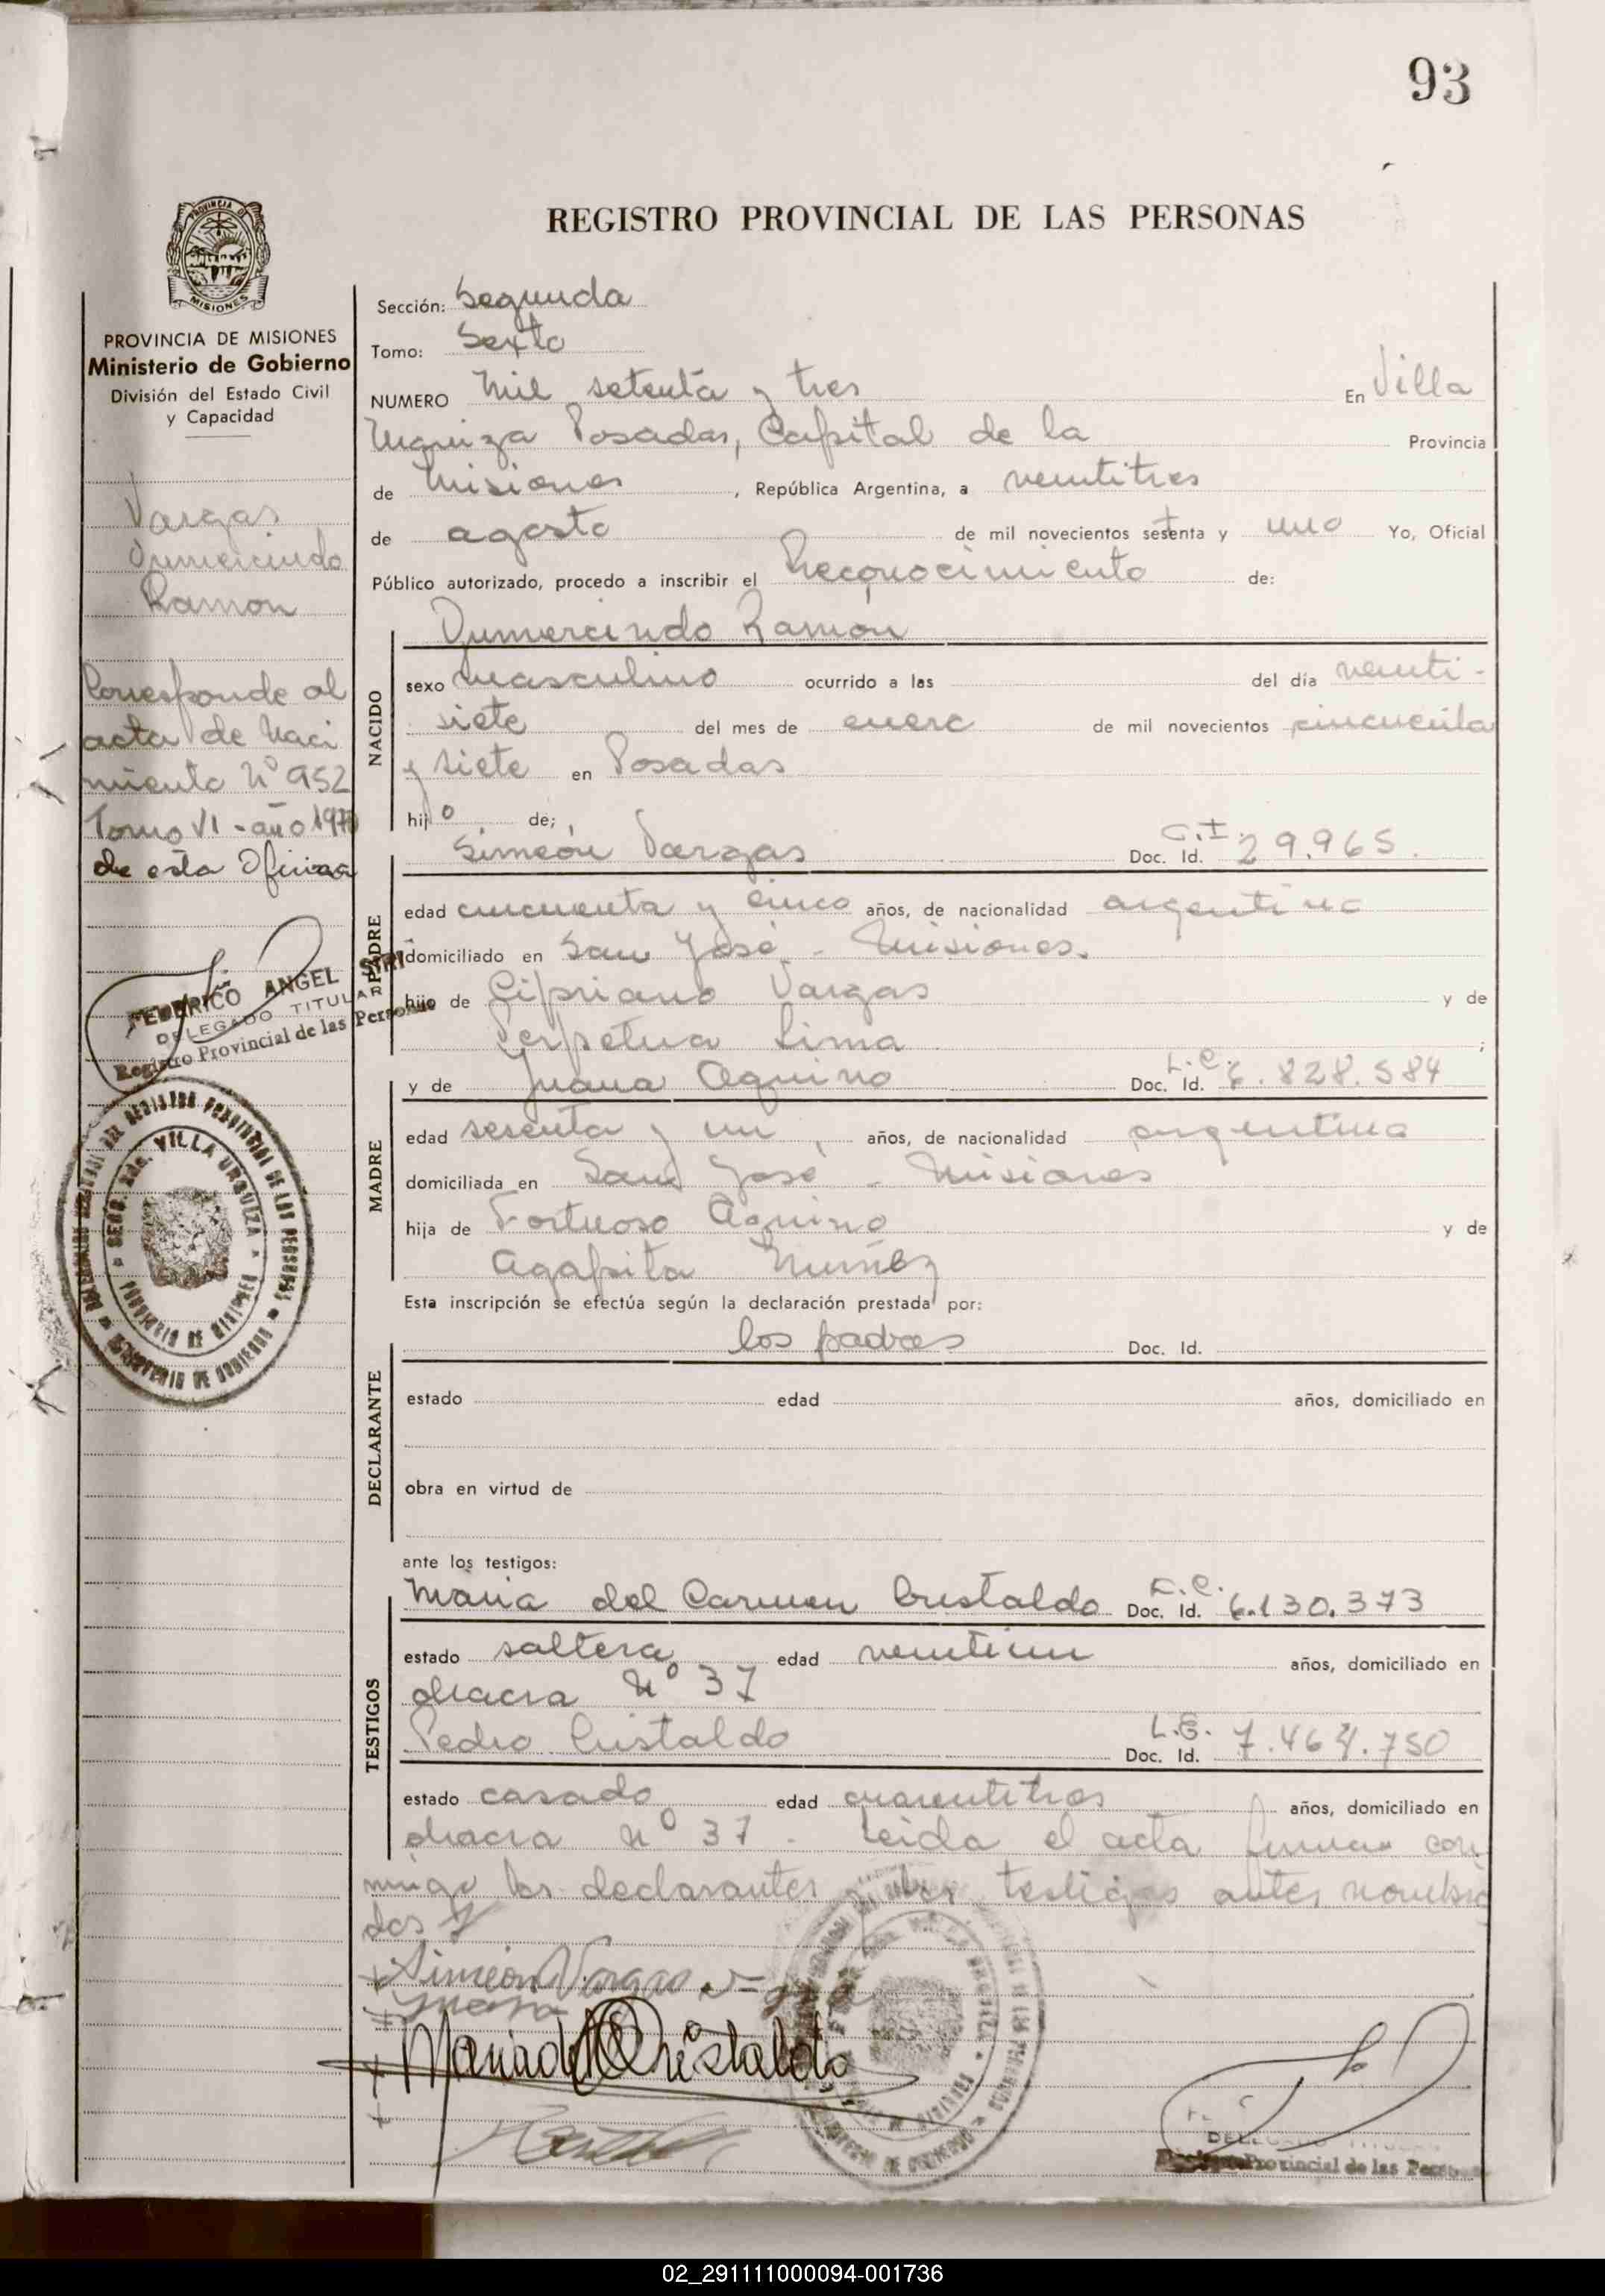 93
REGISTRO PROVINCIAL DE LAS PERSONAS
MISIONES
PROVINCIA DE MISIONES
Ministerio de Gobierno
División del Estado Civil
y Capacidad
Vargas
Gumercindo
Ramon
Corresponde al
acta de Naci
miento Nº 952
Tomo VI - año 1970
de esta Oficina
FEDERICO ANGEL SIRI
DELEGADO TITULAR
Registro Provincial de las Personas
VILLA URQUIZA
PROVINCIA DE MISIONES
MINISTERIO DE GOBIERNO
Sección: Segunda
Tomo: Sexto
NUMERO Mil setenta y tres En Villa
Urquiza Posadas, Capital de la Provincia
de Misiones, República Argentina, a veintitres
de agosto de mil novecientos setenta y uno Yo, Oficial
Público autorizado, procedo a inscribir el Reconocimiento de:
NACIDO
Gumercindo Ramón
sexo masculino ocurrido a las del día veinti-
siete del mes de enero de mil novecientos cincuenta
y siete en Posadas
hijo de;
PADRE
Simeón Vargas Doc. Id. C.I. 29.965.
edad cincuenta y cinco años, de nacionalidad argentina
domiciliado en San José - Misiones.
hijo de Cipriano Vargas y de
Perpetua Lima ;
MADRE
y de Juana Aquino Doc. Id. L.C. 6.828.584
edad sesenta y un años, de nacionalidad argentina
domiciliada en San José - Misiones
hija de Fortuoso Aquino y de
Agapita Nuñez
Esta inscripción se efectúa según la declaración prestada por:
DECLARANTE
los padres Doc. Id.
estado edad años, domiciliado en
obra en virtud de
ante los testigos:
TESTIGOS
Maria del Carmen Cristaldo Doc. Id. L.C. 6.130.373
estado soltera edad veintiun años, domiciliado en
chacra Nº 37
Pedro Cristaldo Doc. Id. L.E. 7.464.750
estado casado edad cuarentitres años, domiciliado en
chacra Nº 37 - Leida el acta firman con
migo los declarantes y los testigos antes nombra
dos
Simeón Vargas
Juana
Maria del C Cristaldo
Provincial de las Personas
02_291111000094-001736